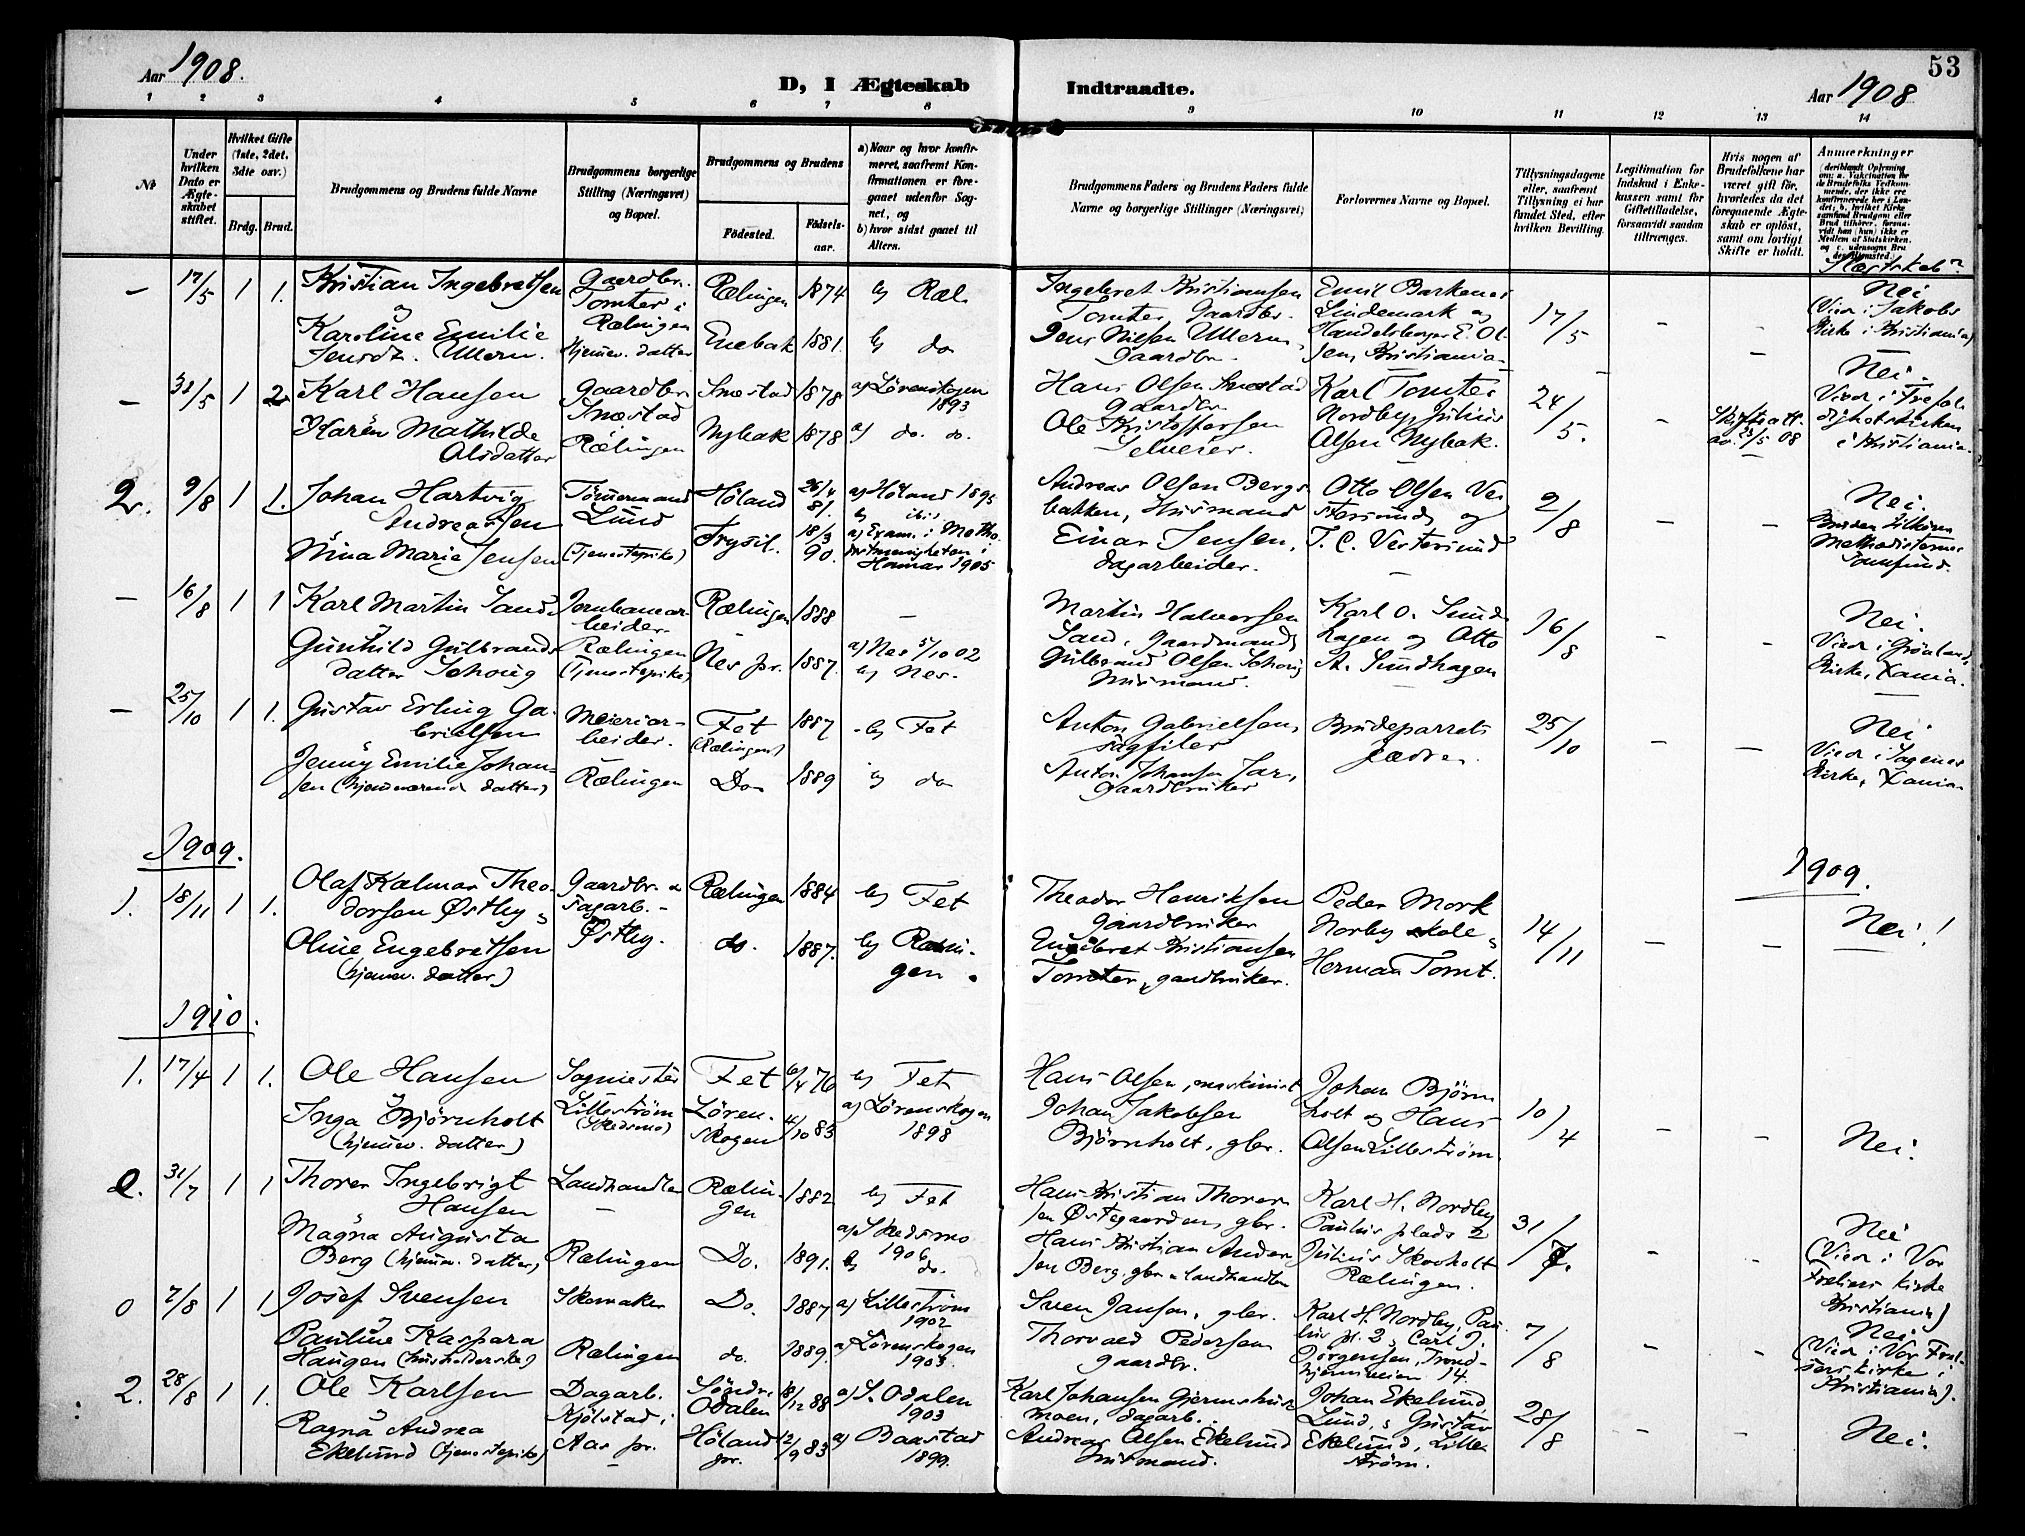 Aar 1908.
D, I Ægteskab Indtraadte.
Aar 1908
53
1 2 3 4 5 6 7 8 9 10 11 12 13 14
№
Under hvilken Dato er Ægteskabet stiftet.
Hvilket Gifte (1ste, 2det, 3dte osv.)
Brdg. Brud.
Brudgommens og Brudens fulde Navne
Brudgommens borgerlige Stilling (Næringsvei) og Bopæl.
Brudgommens og Brudens
Födested. Födselsaar.
a) Naar og hvor konfirmeret, saafremt Konfirmationen er foregaaet udenför Sognet, og
b) hvor sidst gaaet til Alters.
Brudgommens Faders og Brudens Faders fulde Navne og borgerlige Stillinger (Næringsvei)
Forlovernes Navne og Bopæl.
Tillysningsdagene eller, saafremt Tillysning ei har fundet Sted, efter hvilken Bevilling.
Legitimation for Indskud i Enkekassen samt for Giftetilladelse, forsaavidt saadan tiltrænges.
Hvis nogen af Brudefolkene har været gift för, hvorledes da det foregaaende Ægteskab er oplöst, samt om lovligt Skifte er holdt.
Anmerkninger
Slegtskab?
— 17/5 1 1. Kristian Ingebretsen Gaardbr. Tomter i Rælingen Rælingen 1874 b) Ræl.
Ingebret Kristiansen Tomter Gaardbr. Emil Barkenes Lindemark og 17/5 – – Nei
& Karoline Emilie Jensdtr. Ullern. Hjemmev. datter Enebak 1881. b) do
Jens Nielsen Ullern, Gaardbr. Handelsborger E. Olsen, Kristiania Viet i Jakobs Kirke i Kristiania)
— 31/5 1 2 Karl Hansen Gaardbr. Smestad Smestad 1878 a) Lørenskogen 1893
Hans Olsen Smestad gaardbr. Karl Tomter Nordby, Julius 24/5. – Skifteatt. av 23/5 08 Nei.
Karen Mathilde Olsdatter Rælingen Nybak 1878 a) do. do.
Ole Kristoffersen Selveier. Olsen Nybak. Viet i Trefoldighetskirken i Kristiania.
2. 9/8 1 1. Johan Hartvig Andreassen Tømmermand Lund Høland 26/4 81. a) Høland 1895 b) ibid
Andreas Olsen Bergsbakken, Husmand Otto Olsen Vestersund, og 2/8 – – Nei.
Nina Marie Jensen (Tjenestepike) Trysil. 18/3 90. a) Exam. i Methodistmenigheten i Hamar 1905
Einar Jensen, dagarbeider. T. C. Vestersund Bruden tilhører Methodisternes Samfund.
— 16/8 1 1 Karl Martin Sand Jernbanearbeider Rælingen 1888 —
Martin Halvorsen Sand, Gaardmand Karl O. Sundhagen og Otto 16/8 – – Nei.
Gunhild Gulbrandsdatter Schoug Rælingen (Tjenestepike) Nes pr. 1887. a) Nes 5/10 02 b) Nes.
Gulbrand Olsen Schoug Husmand. A. Sundhagen Viet i Grønlands Kirke, Xania.
— 25/10 1 1. Gustav Erling Gabrielsen Meieriarbeider. Fet (Rælingen) 1887 b) Fet
Anton Gabrielsen, sagfiler Brudeparrets fædre. 25/10 – – Nei
Jenny Emilie Johansen (hjemmeværend datter) Rælingen Do 1889 b) do
Anton Johansen Jar, gaardbruker Viet i Sagenes Kirke, Xania
1909. 1909.
1. 18/11 1 1. Olaf Kalmar Theodorsen Østby & Gaardbr. & sagarb. – Østby. Rælingen 1884 b) Fet
Theodor Henriksen gaardbruker Peder Mork Norby skole & 14/11 – – Nei!
Oline Engebretsen (hjemmev. datter) do. 1887. b) Rælingen.
Engebret Kristiansen Tomter, gaardbruker. Herman Tomt.
1910.
1. 17/4 1 1. Ole Hansen Sogmester Lillestrøm (Skedsmo) Fet 6/4 76 b) Fet
Hans Olsen, maskinist Johan Bjørnholt og Hans 10/4 – – Nei.
& Inga Bjørnholt (hjemmev. datter) Lørenskogen 4/10 83 a) Lørenskogen 1898
Johan Jakobsen Bjørnholt, gbr. Olsen Lillestrøm.
2. 31/7 1 1 Thorer Ingebrigt Hansen Landhandler – Rælingen 1882 b) Fet
Hans Kristian Thorersen Østegaarden, gbr. Karl H. Nordby Paulus plads 2 31/7. – – Nei
& Magna Augusta Berg (hjemmev. datter) Rælingen Do. 1891. a) Skedsmo 1906 b) do.
Hans Kristian Andersen Berg, gbr & landhandler Julius Skovholt Rælingen. (Viet i Vor Frelsers kirke Kristiania)
0 7/8 1 1 Josef Svensen Skomaker Do. 1887 a) Lillestrøm 1902
Sven Janson, gbr. Karl H. Nordby, Paulus pl. 2, Carl J. 7/8 – – Nei
& Pauline Kaspara Haugen (husholderske) Rælingen do. 1889. a) Lørenskogen 1903.
Thorvald Pedersen gaardbr. Jørgensen, Trondhjemsveien 14. (Viet i Vor Frelsers kirke, Kristiania).
2. 28/8 1 1. Ole Karlsen Dagarb. Kjølstad i Aas pr. – Söndr. Odalen 18/12 88 a) S. Odalen 1903
Karl Johansen Gjermshusmoen, dagarb. Johan Ekelund, Lund, & Gustav 28/8 – – Nei.
& Ragna Andrea Ekelund (tjenestepike) Høland pr. 12/9 83 a) Baastad 1899.
Andreas Olsen Ekelund husmand. Ekelund, Lillestrøm.